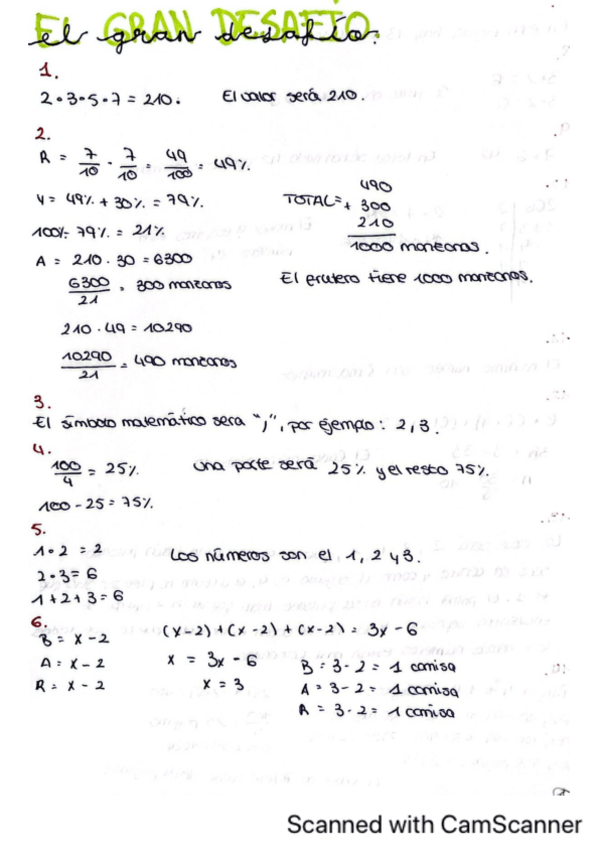 EL GRAN DESAFÍO
el gran desafío.
1.
2·3·5·7 = 210. El valor será 210.
2.
R = 7/10 · 7/10 = 49/100 = 49%
V = 49% + 30% = 79%.
100% - 79% = 21%
A = 210 · 30 = 6300
6300/21 = 300 manzanas
210 · 49 = 10290
10290/21 = 490 manzanas
490
TOTAL = + 300
210
1000 manzanas.
El frutero tiene 1000 manzanas.
3.
El símbolo matemático sera ",", por ejemplo: 2,3.
4.
100/4 = 25% Una parte será 25% y el resto 75%.
100 - 25 = 75%
5.
1·2 = 2 Los números son el 1, 2 y 3.
2·3 = 6
1+2+3 = 6
6.
B = x - 2 (x-2)+(x-2)+(x-2) = 3x - 6
A = x - 2 x = 3x - 6 B = 3 - 2 = 1 camisa
R = x - 2 x = 3 A = 3 - 2 = 1 camisa
A = 3 - 2 = 1 camisa
Scanned with CamScanner